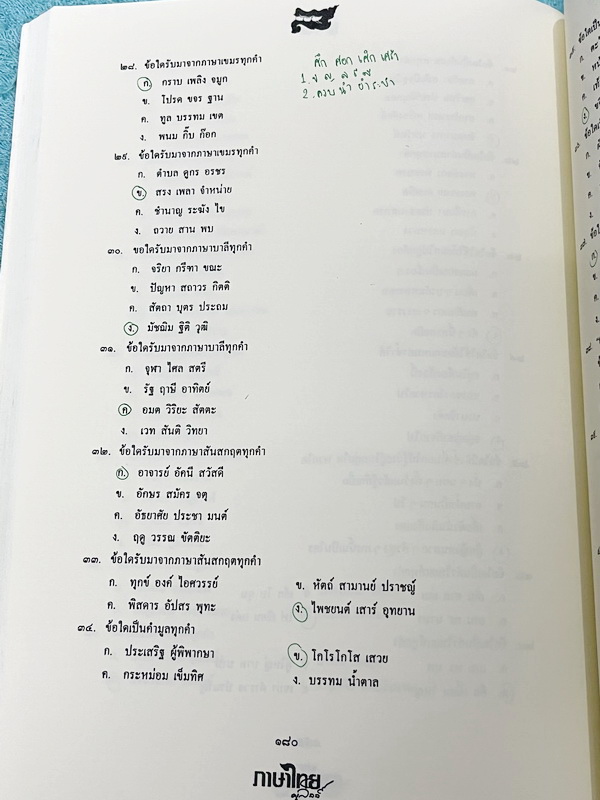 ๒๘. ข้อใดรับมาจากภาษาเขมรทุกคำ
ก. กราบ เพลิง จมูก
ข. โปรด ขจร ฐาน
ค. ทูล บรรทม เขต
ง. พนม กิ๊บ ก๊อก
๒๙. ข้อใดรับมาจากภาษาเขมรทุกคำ
ก. ตำบล ดูกร อรชร
ข. สรง เพลา จำหน่าย
ค. ชำนาญ ระฆัง ไข
ง. ถวาย สาน พบ
๓๐. ข้อใดรับมาจากภาษาบาลีทุกคำ
ก. จริยา กรีฑา ขณะ
ข. ปัญหา สถาวร กิตติ
ค. สัตถา บุตร ประถม
ง. มัชฌิม ฐิติ วุฒิ
๓๑. ข้อใดรับมาจากภาษาบาลีทุกคำ
ก. จุฬา ไศล สตรี
ข. รัฐ ฤาษี อาทิตย์
ค. อมต วิริยะ สัตตะ
ง. เวท สันติ วิทยา
๓๒. ข้อใดรับมาจากภาษาสันสกฤตทุกคำ
ก. อาจารย์ อัคนี สวัสดี
ข. อักษร สมัคร จตุ
ค. อัธยาศัย ประชา มนต์
ง. ฤดู วรรณ ขัตติยะ
๓๓. ข้อใดรับมาจากภาษาสันสกฤตทุกคำ
ก. ทุกข์ องค์ ไอศวรรย์
ข. หัตถ์ สามานย์ ปราชญ์
ค. พิสดาร อัปสร พุทะ
ง. ไพชยนต์ เสาร์ อุทยาน
๓๔. ข้อใดเป็นคำมูลทุกคำ
ก. ประเสริฐ ผู้พิพากษา
ข. โกโรโกโส เสวย
ค. กระหม่อม เข็มทิศ
ง. บรรทม น้ำตาล
๑๘๐
ภาษาไทย